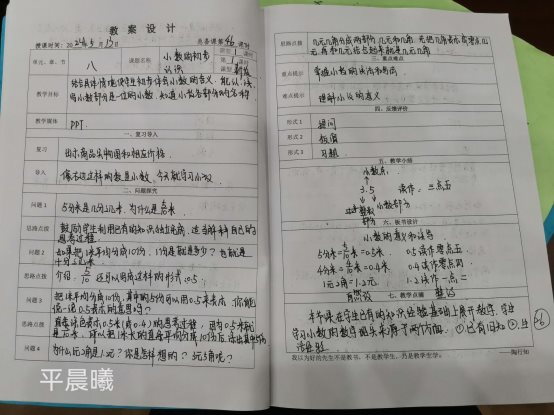 教 案 设 计
授课时间:2024年5月13日 总备课第46课时
单元、章、节 八 课题名称 小数的初步认识 第1课时
教学目标
结合具体情境使学生初步体会小数的含义,能认、读、
写小数部分是一位的小数,知道小数各部分的名称
教学媒体 PPT.
一、复习导入
复习 出示商品实物图和相应价格.
导入 像这样的数是小数,今天就学习小数
二、问题探究
问题1 5分米是几分之几米,为什么是5/10米.
思路点拨 鼓励学生利用已有的知识独立思考,适当解释自己的
思考过程.
问题2 如果把1米平均分成10份,1份是
十分之
思路点拨 介绍:5/10还可以用这样的形式:0.5.
问题3 把1米平均分成10份,其中的5份可以用0.5来表示,你能
说一说0.5表示的意思吗?
思路点拨 0.5米(或0.4)的思考过程,因为0.5米就
是5/10米,所以把1米长的平均分成10份后,
问题4 为什么1元2角是1.2元?你是怎样想的? 3元5角呢?
思路点拨 几元几角分成两部分,几元和几角,先把几角表示成零点几
元,再和几元结合起来就是几点几
三、重点难点
重点提示 掌握小数的读法和写法.
难点提示 理解小数的意义
四、反馈评价
形式1 提问
形式2 板演
形式3 习题
五、教学小结
小数点
3.5 读作:三点五
整数部分 小数部分
六、板书设计
小数的意义和读写
5分米=5/10米=0.5米 0.5读作零点五
4分米=4/10米=0.4米 0.4读作零点四
1元2角=1.2元. 1.2读作一点二
自然数 整数
七、教学点播
本节课在学生已有的知识经验基础上展开教学,学生
学习小数的教学
活经验
我以为好的先生不是教书,不是教学生,乃是教学生学。 ——陶行知
平晨曦